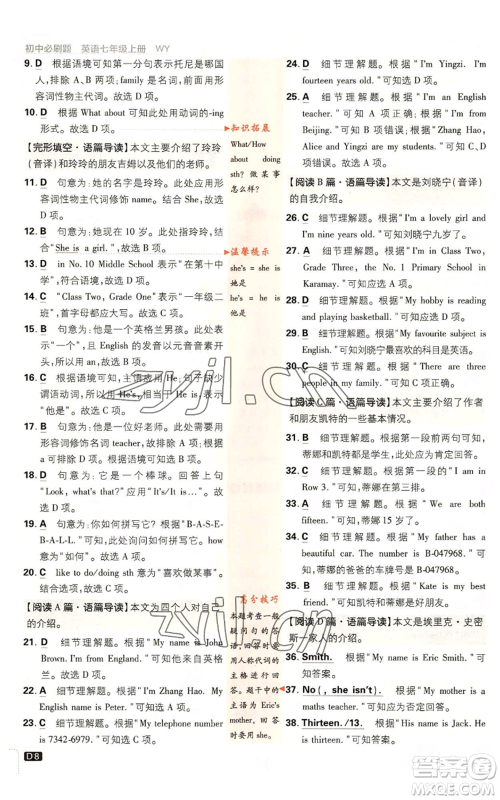 初中必刷题 英语七年级上册 WY
9. D 根据语境可知第一部分表示托尼是哪国人,故排除 A、B 项;family 是名词,前有形容词性物主代词修饰。故选 D 项。
10. D 根据 What about 可知此处用动词的-ing形式。故选 D 项。
【完形填空·语篇导读】本文主要介绍了玲玲(音译)和玲玲的朋友吉姆以及他们的老师。
11. D 句意为:她的名字是玲玲。此处应用形容词性物主代词修饰 name。故选 D 项。
12. B 句意为:她现在 10 岁。此处指玲玲,结合“She is a girl.”可知,故选 B 项。
13. D in No. 10 Middle School 表示“在第十中学”,符合语境。故选 D 项。
14. C “Class Two, Grade One”表示“一年级二班”,首字母都应大写。故选 C 项。
15. B 句意为:他是一个英格兰男孩。此处表示“一个”,且 English 的发音以元音音素开头,所以用 an。故选 B 项。
17. B 句意为:
18. D 句意为:它是一个棒球。回答上句“Look, what's that?”应用“It's/It is”。故选 D 项。
19. A 句意为:你怎么拼写它?根据“B-A-S-E-B-A-L-L.”可知,此处询问怎么拼写。故选 A 项。
20. C like to do/like doing sth 意为“喜欢做某事”。故选 C 项。
【阅读 A 篇·语篇导读】本文为四个人对自己的介绍。
21. D 细节理解题。根据“My name is John Brown. I'm from England.”可知他来自英格兰。故选 D 项。
22. C 细节理解题。根据“I'm Zhang Hao. My English name is Peter.”可知选 C 项。
23. C 细节理解题。根据“My telephone number is 7342-6979.”可知选 C 项。
D8
知识拓展
What/How about doing sth? 做某事怎么样?
温馨提示
she's = she is 她是
he's = he is 他是
高分技巧
本题考查一般疑问句的答语,回答时常用人称代词的主格进行回答。题干中的主语是 Eric's mother,回答时要用 she。
24. D 细节理解题。根据“I'm Yingzi. I'm fourteen years old.”可知选 D 项。
25. A 细节理解题。根据“I'm an English teacher.”“I'm Zhang Hao.”“I'm from Beijing.”“My name is Rachel. I'm a teacher, Alice and Yingzi are my students.”可知选 A 项。
【阅读 B 篇·语篇导读】本文是刘晓宁(音译)的自我介绍。
26. D 细节理解题。根据“I'm a lovely girl and I'm nine years old.”可知刘晓宁九岁了。
27. A 细节理解题。根据“I'm in Class Two, Grade Three, the No. 1 Primary School in Karamay.”可知选 A 项。
28. B 细节理解题。根据“My hobby is reading and playing basketball.”可知选 B 项。
29. B 细节理解题。根据“My favourite subject is English.”可知刘晓宁最喜欢的科目是英语。
30. C 细节理解题。根据“There are three people in my family.”可知选 C 项。
【阅读 C 篇·语篇导读】本文主要介绍了作者和朋友凯特的一些基本情况。
31. C 细节理解题。根据第一段可知,蒂娜是英国人。
32. C 细节理解题。根据第一段的“I am in Row 3.”可知,蒂娜在第三排。
33. C 细节理解题。根据“We are both fifteen.”可知,蒂娜 15 岁了。
34. B 细节理解题。根据“My father has a beautiful car. The number is B-047968.”可知,爸爸的车牌号是 B-047968。
35. A 细节理解题。根据“Kate is my best friend.”可知凯特和蒂娜是好朋友。
【阅读 D 篇·语篇导读】本文是埃里克·史密斯一家人的介绍。
36. Smith. 根据“My name is Eric Smith.”可知答案。
37. No(, she isn't). 根据“My mother is a maths teacher.”可知答案。
38. Thirteen./13. 根据“His name is Jack. He is thirteen.”可知答案。